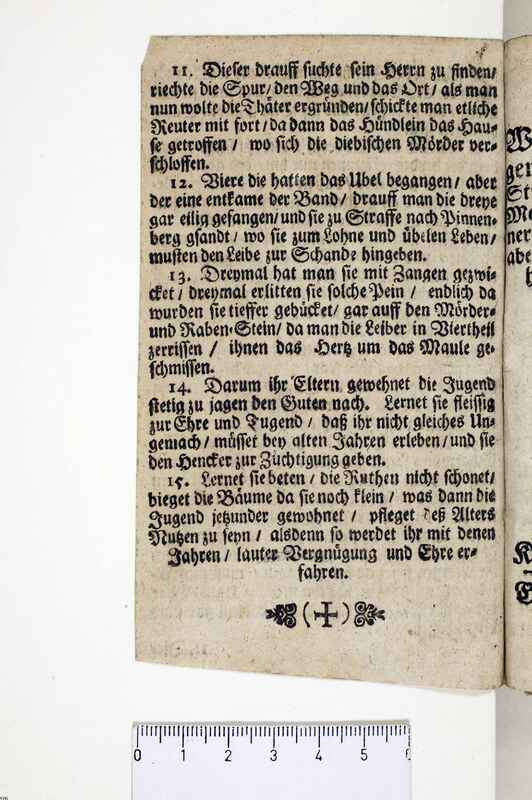 11. Dieser drauff suchte sein Herrn zu finden/
riechte die Spur/ den Weg und das Ort/ als man
nun wolte die Thäter ergründen/ schickte man etliche
Reuter mit fort/ da dann das Hündlein das Hau-
se getroffen/ wo sich die diebischen Mörder ver-
schloffen.
12. Viere die hatten das Ubel begangen/ aber
der eine entkame der Band/ drauff man die dreye
gar eilig gefangen/ und sie zu Straffe nach Pinnen-
berg gsandt/ wo sie zum Lohne und übelen Leben/
musten den Leibe zur Schande hingeben.
13. Dreymal hat man sie mit Zangen gezwi-
cket/ dreymal erlitten sie solche Pein/ endlich da
wurden sie tieffer gebücket/ gar auff den Mörder-
und Raben-Stein/ da man die Leiber in Viertheil
zerrissen/ ihnen das Hertz um das Maule ge-
schmissen.
14. Darum ihr Eltern gewehnet die Jugend
stetig zu jagen den Guten nach. Lernet sie fleissig
zur Ehre und Tugend/ daß ihr nicht gleiches Un-
gemach/ müsset bey alten Jahren erleben/ und sie
den Hencker zur Züchtigung geben.
15. Lernet sie beten/ die Ruthen nicht schonet/
bieget die Bäume da sie noch klein/ was dann die
Jugend jetzunder gewohnet/ pfleget deß Alters
Nutzen zu seyn/ alsdenn so werdet ihr mit denen
Jahren/ lauter Vergnügung und Ehre er-
fahren.
0 1 2 3 4 5